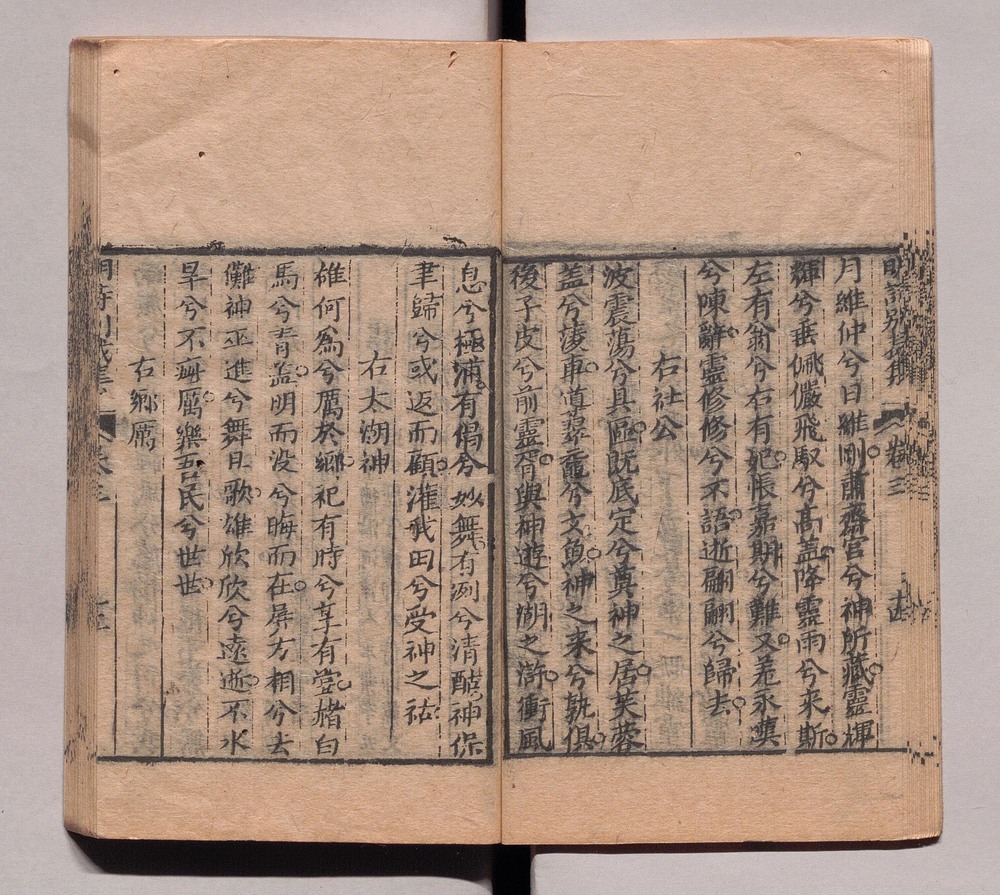 明詩別裁集
卷三
月維仲兮日維剛肅齋宮兮神所藏靈揮
輝兮垂佩儼飛馭兮高蓋降靈雨兮來斯
左有翁兮右有妃悵嘉期兮難又羞永奠
兮陳辭靈修修兮不語逝翩翩兮歸去
右社公
波震蕩兮具區既底定兮奠神之居芙蓉
蓋兮淩車導翠黿兮文魚神之來兮孰俱
後子皮兮前靈胥與神遊兮湖之滸衝風
息兮極浦有偈兮妙舞有洌兮清酤神保
聿歸兮或返而顧灌我田兮受神之祜
右太湖神
雄何為兮厲於鄉祀有時兮享有嘗赭白
馬兮青蓋明而没兮晦而在屏方相兮去
儺神巫進兮舞且歌雄欣欣兮遠逝不水
旱兮不癘厲樂吾民兮世世
右鄉厲